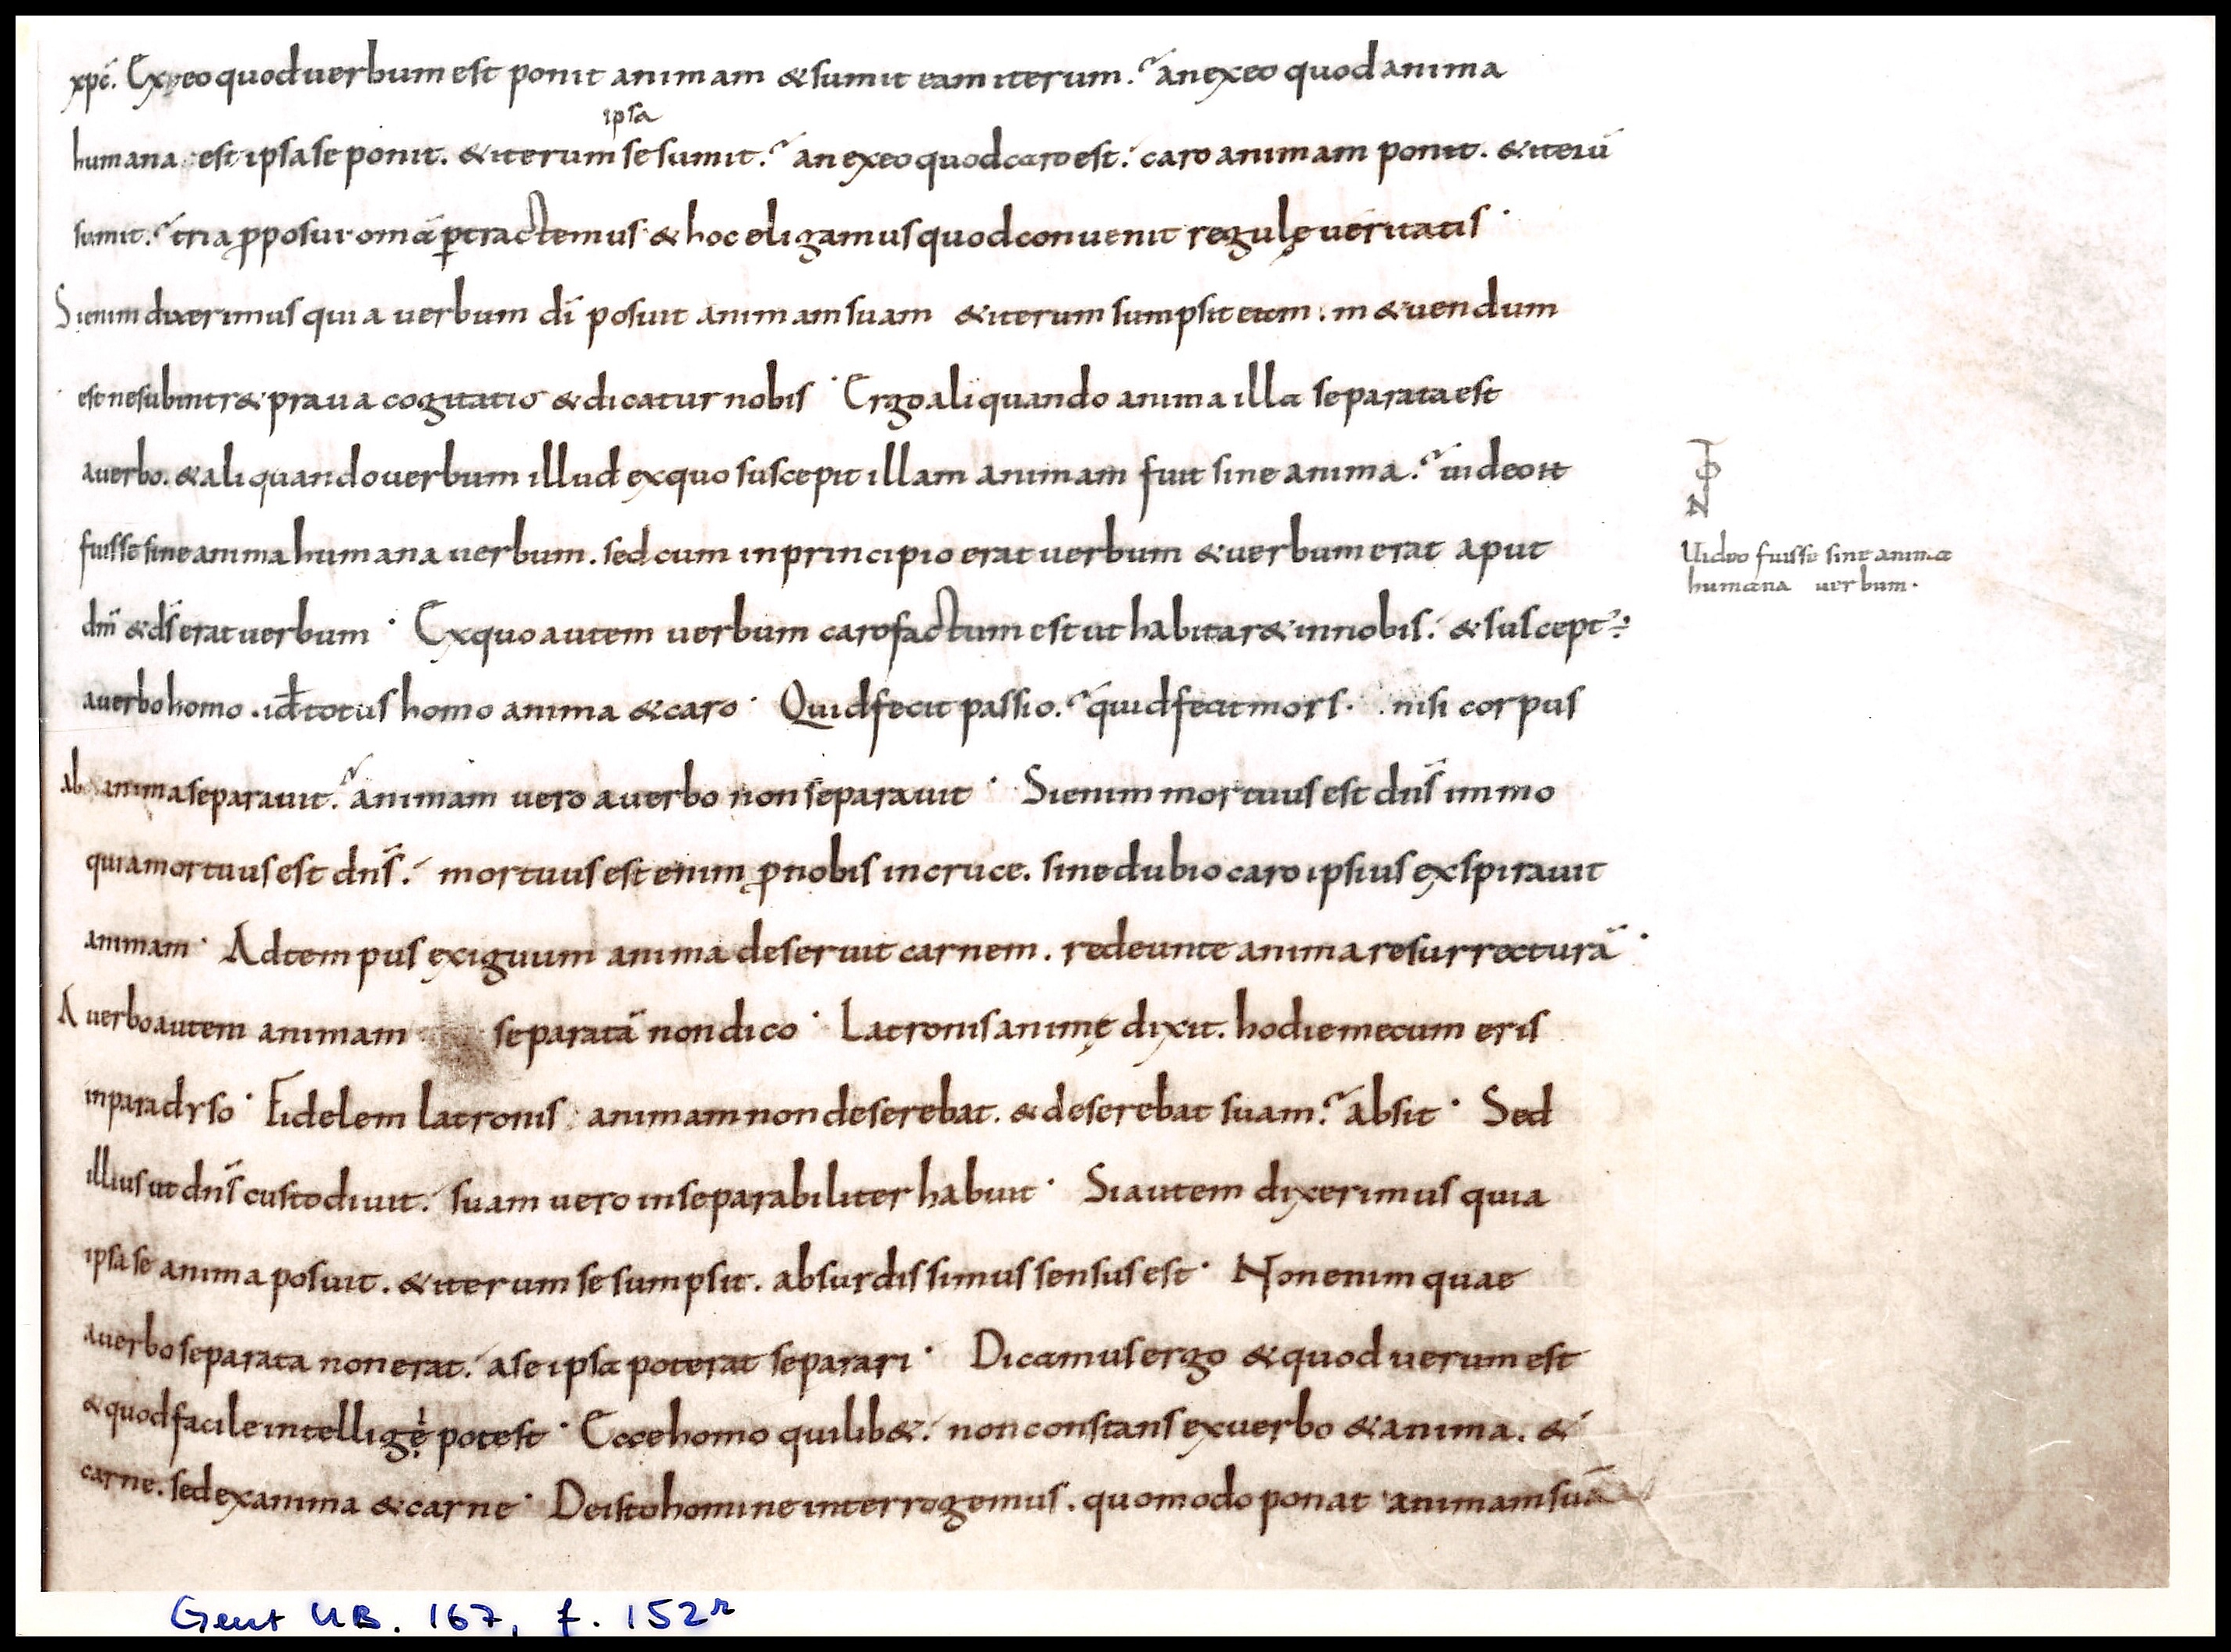 xpc̄. Ex eo quod uerbum est ponit animam & sumit eam iterum.? an ex eo quod anima
ipsa
humana est ipsa se ponit. & iterum se sumit.? an ex eo quod caro est. caro animam ponit. & iterū
sumit.? tria ꝓposui omā ꝑtractemus & hoc eligamus quod conuenit regulę ueritatis ·
Si enim dixerimus quia uerbum dī posuit animam suam & iterum sumpsit eam. m&uendum
est ne subintr& praua cogitatio & dicatur nobis · Ergo aliquando anima illa separata est
a uerbo. & aliquando uerbum illud ex quo suscepit illam animam fuit sine anima.? uideo
fuisse sine anima humana uerbum. sed cum in principio erat uerbum & uerbum erat aput
dm̄ & ds̄ erat uerbum · Ex quo autem uerbum caro factum est ut habitar& in nobis. & suscept; ÷
a uerbo homo. id ÷ totus homo anima & caro · Quid fecit passio.? quid fecit mors. nisi corpus
ab anima separauit.? animam uero a uerbo non separauit · Si enim mortuus est dns̄ immo
quia mortuus est dns̄. mortuus est enim ꝓ nobis in cruce. sine dubio caro ipsius exspirauit
animam · Ad tempus exiguum anima deseruit carnem. redeunte anima resurrecturā ·
A uerbo autem animam separatā non dico · Latronis animę dixit. hodie mecum eris
in paradyso · Fidelem latronis animam non deserebat. & deserebat suam.? absit · Sed
illius ut dns̄ custodiuit. suam uero inseparabiliter habuit · Si autem dixerimus quia
ipsa se anima posuit. & iterum se sumpsit. absurdissimus sensus est · Non enim quae
a uerbo separata non erat. a se ipsa poterat separari · Dicamus ergo & quod uerum est
i
& quod facile intellige potest · Ecce homo quilib&. non constans ex uerbo & anima. &
carne. sed ex anima & carne · De isto homine interrogemus. quomodo ponat animam suā
N
Uideo fuisse sine anima
humana uerbum.
Gent UB. 167, f. 152r